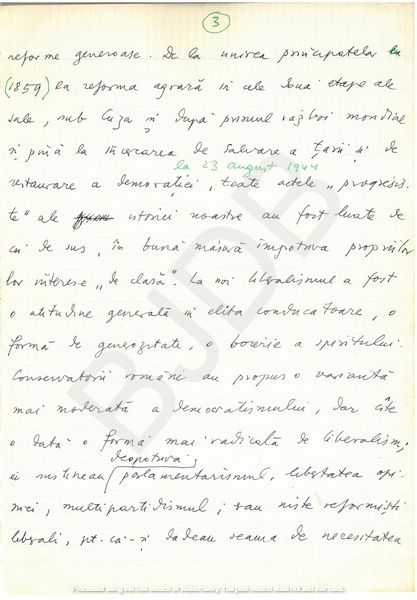 3
reforme generoase. De la unirea principatelor
(1859) la reforma agrară în cele două etape ale
sale, sub Cuza și după primul război mondial
și pînă la încercarea de salvare a Țării și de
la 23 august 1944
restaurare a democrației, toate actele „progresis-
te" ale istoriei noastre au fost luate de
cei de sus, în bună măsură împotriva propriilor
lor interese „de clasă". La noi liberalismul a fost
o atitudine generală în elita conducătoare, o
formă de generozitate, o boierie a spiritului.
Conservatorii români au propus o variantă
mai moderată a democratismului, dar cîte
o dată o formă mai radicală de liberalism;
deopotrivă,
ei susțineau parlamentarismul, libertatea opi-
niei, multipartidismul; sau niște reformiști
liberali, pt. că-și dădeau seama de necesitatea
BUDB